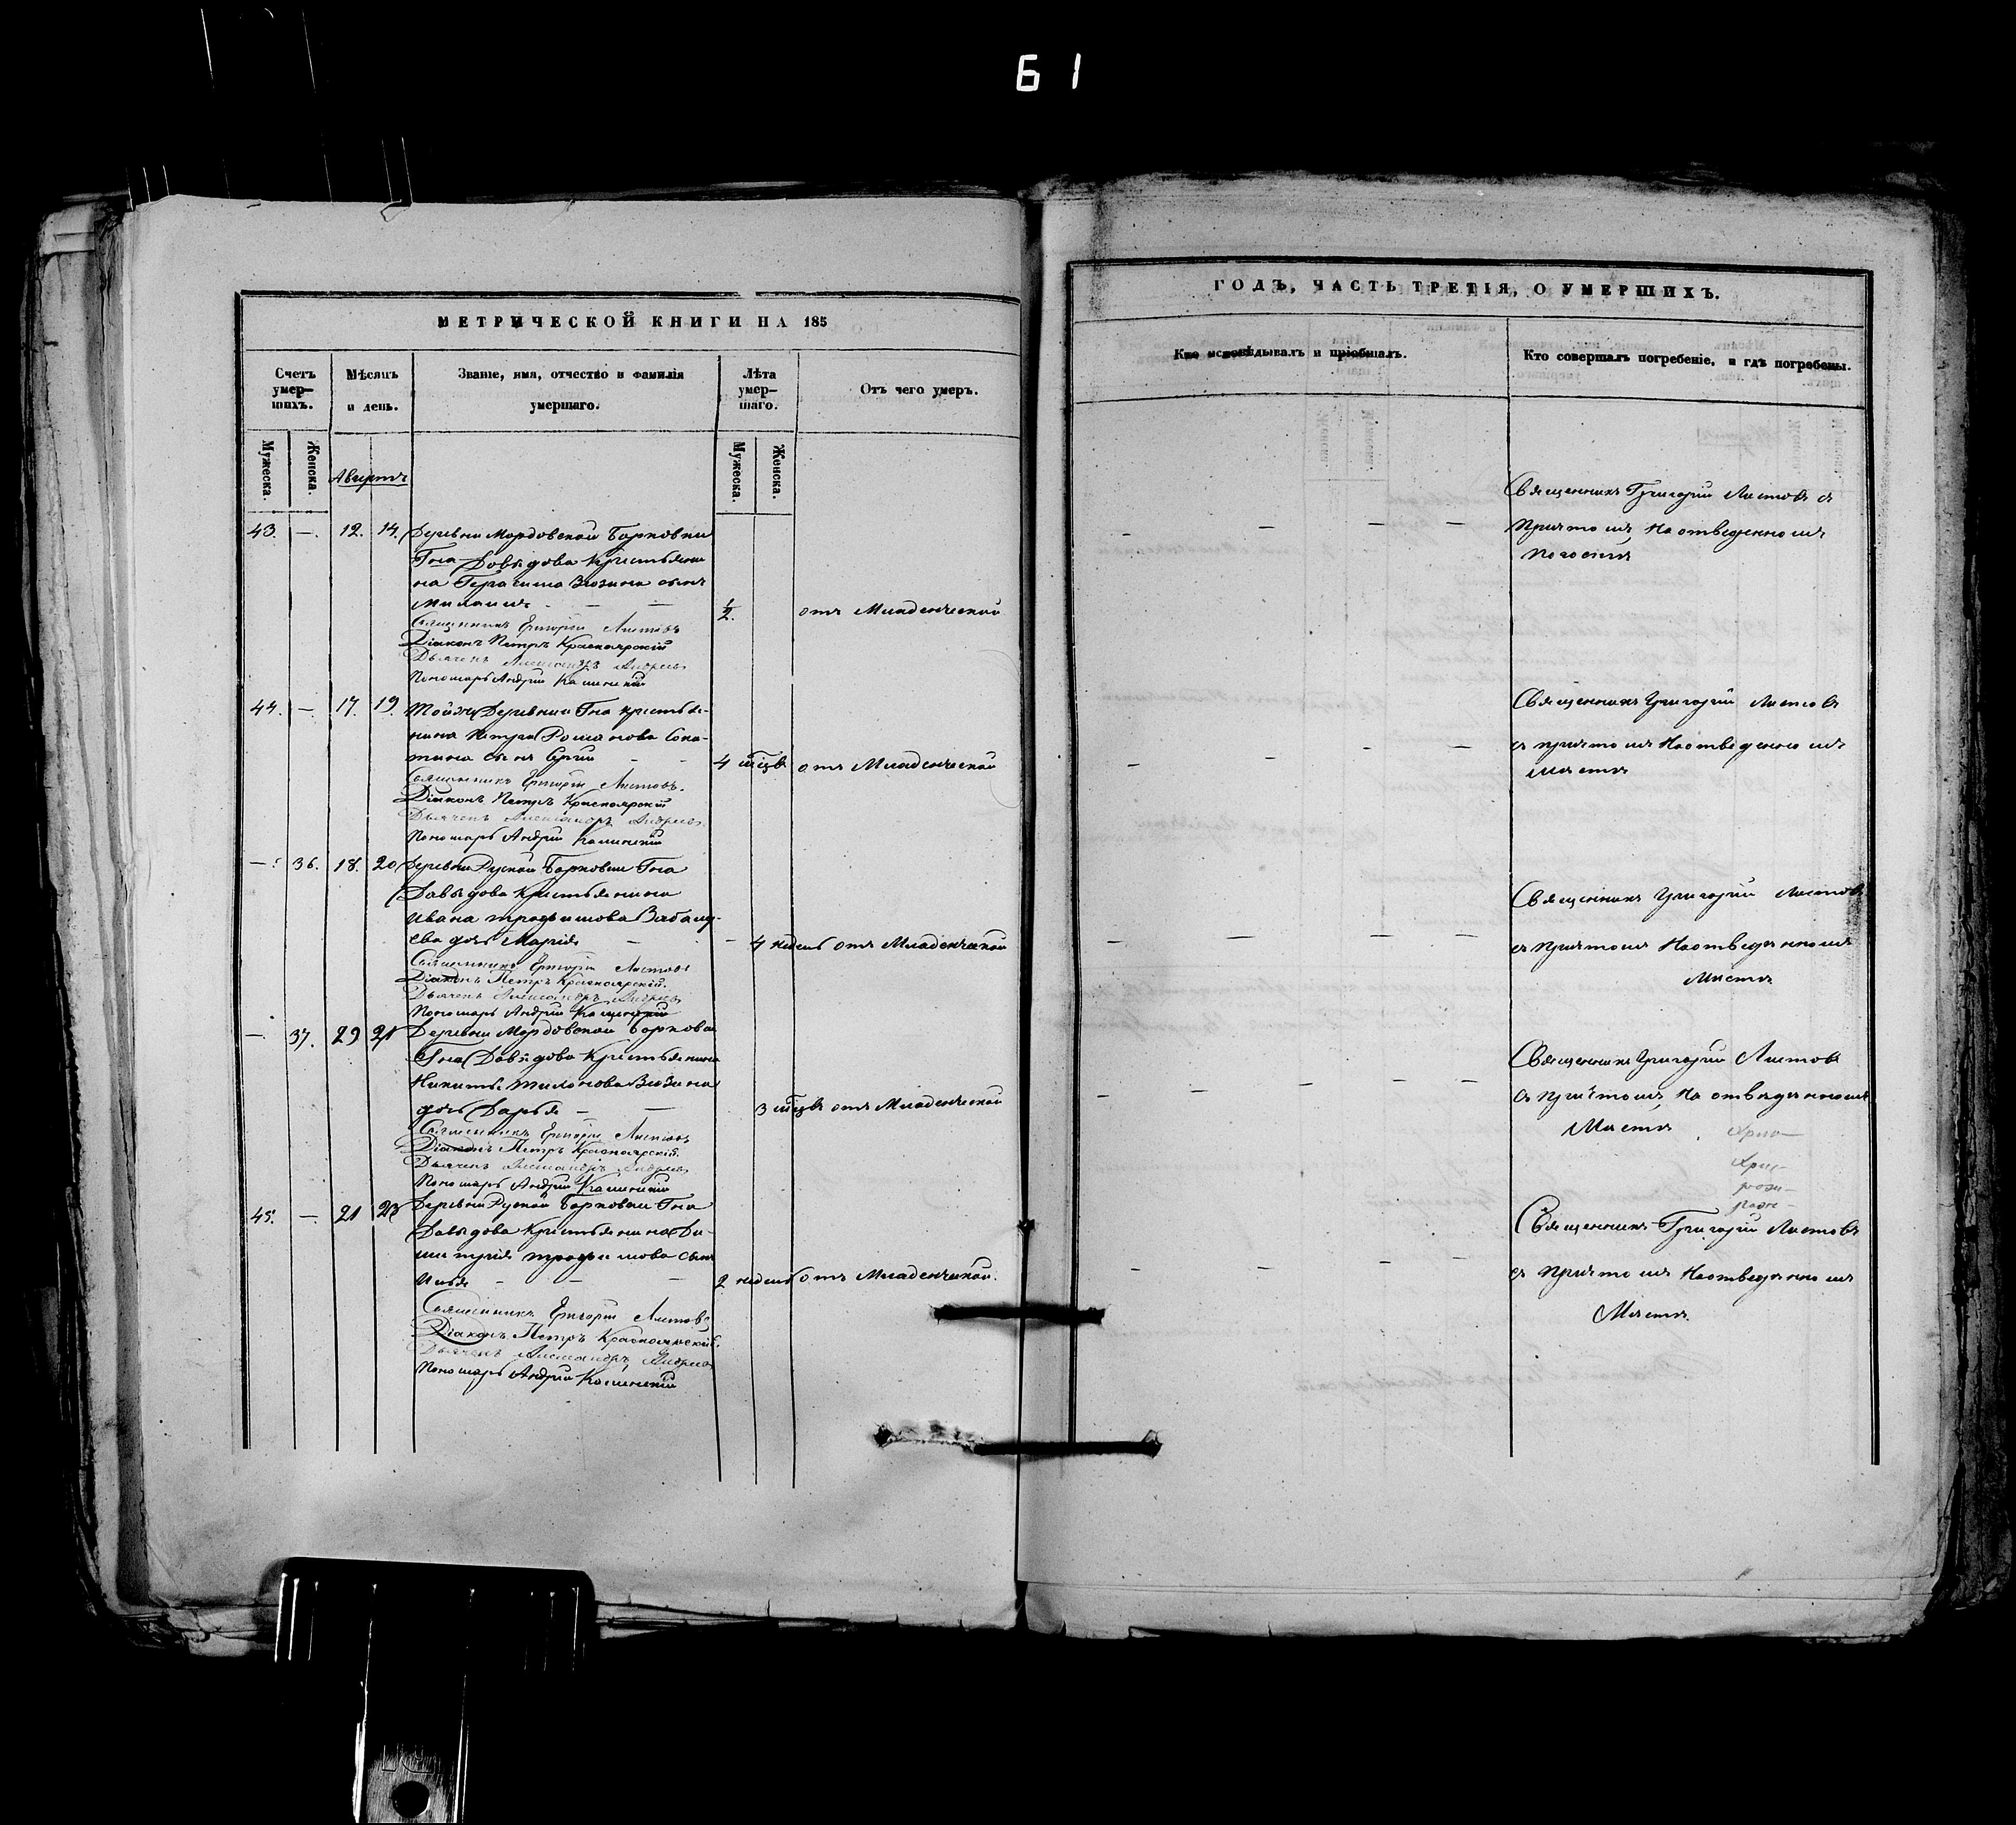 61
МЕТРИЧЕСКОЙ КНИГИ НА 185
Счетъ умер-шихъ.
Мѣсяцъ и день.
Званіе, имя, отчество и фамилія умершаго.
Лѣта умер-шаго.
Отъ чего умеръ.
Мужеска.
Женска.
Августъ
Мужеска.
Женска.
43. —. 12. 14. Деревни Мордовской Борковки
Гна Давыдова крестьяни
на Герасима Вюзина сынъ
½. отъ Младенческой
Священникъ Григорій Листовъ
Діаконъ Петръ Красноярскій
Дьячекъ Александръ Андреевъ
Пономарь Андрей Каменскій
44. —. 17. 19. Тойже Деревни Гна крестья-
нина Петра Романова Сока-
тина сынъ Сергий — 4 мцвъ отъ Младенческой
Священникъ Григорій Листовъ.
Діаконъ Петръ Красноярскій
Дьячекъ Александръ Андреевъ
Пономарь Андрей Каменскій
—. 36. 18. 20 Деревни Руской Борковки Гна
Давыдова крестьянина
Ивана Трофимова
дочь Марія — 4 недель отъ Младенческой
Священникъ Григорій Листовъ
Діаконъ Петръ Красноярскій.
Дьячекъ Александръ Андреевъ
Пономарь Андрей Каменскій
—. 37. 29 21 Деревни Мордовской Борковки
Гна Давыдова Крестьянина
Никиты Вюзина
дочь Дарья — — 3 мцвъ отъ Младенческой
Священникъ Григорій Листовъ
Діаконъ Петръ Красноярскій.
Дьячекъ Александръ Андреевъ
Пономарь Андрей Каменскій
45. —. 21 23 Деревни Руской Борковки Гна
Давыдова Крестьянина Ди-
митрія Трофимова сынъ
Илья — — — 2 недель отъ Младенческой.
Священникъ Григорій Листовъ
Діаконъ Петръ Красноярскій.
Дьячекъ Александръ Андреевъ
Пономарь Андрей Каменскій
ГОДЪ, ЧАСТЬ ТРЕТІЯ, О УМЕРШИХЪ.
Кто исповѣдывалъ и пріобщалъ.
Кто совершалъ погребеніе, и гдѣ погребены.
— — — Священникъ Григорій Листовъ съ
Причтомъ, На отведенномъ
погостѣ
— — — Священникъ Григорій Листовъ
съ причтомъ На отведенномъ
месте
— — — — Священникъ Григорій Листовъ
съ Причтомъ На отведенномъ
Месте
— — — — Священникъ Григорій Листовъ
съ Причтомъ, На отведенномъ
Месте
— — — Священникъ Григорій Листовъ
съ Причтомъ На отведенномъ
Месте.